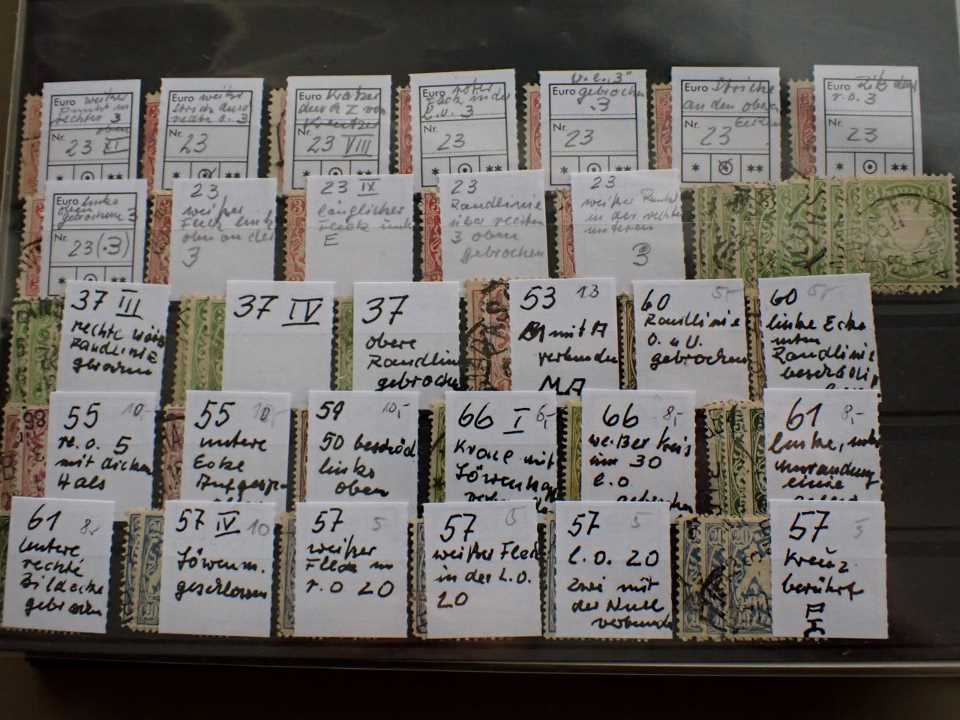 Euro weißer
Punkt in
rechter 3
oben
Nr.
23 XI
* **
Euro weißer
Strich durch
rechte o. 3
Nr.
23
* **
Euro
durch I von
Kreutzer
Nr.
23 VIII
* **
Euro roter
Fleck in der
l. u. 3
Nr.
23
* **
Euro gebrochen
.3
Nr.
23
* **
Euro Striche
an den oberen
Ecken
Nr.
23
* **
Euro
r. o. 3
Nr.
23
* **
Euro linke
oben
gebrochene 3
Nr.
23 (.3)
* **
23
weißer
Fleck links
oben an der
3
23 IX
länglicher
Fleck unter
E
23
Randlinie
über rechter
3 oben
gebrochen
23
weißer Punkt
in der rechten
unteren
3
37 III
rechte
Randlinie
37 IV
37
obere
Randlinie
gebrochen
53 13
M mit A
verbunden
MA
60 5,-
Randlinie
o. u U.
gebrochen
60 5,-
linke Ecke
unten
Randlinie
55 10,-
re. o. 5
mit dicken
Hals
55 10,-
untere
Ecke
59 10,-
50 beschäd
links
oben
66 I 6,-
Krone mit
66 8,-
weißer Kreis
im 30
l. o.
61 8,-
linke, unt
61 8,-
untere
rechte
Bildecke
gebrochen
57 IV 10
Löwenm.
geschlossen
57 5
weißer
Fleck im
r. o 20
57 5
weißer Fleck
in der L.O.
20
57 5
l. o. 20
zwei mit
der Null
verbunden
57 5
Kreuz
berührt